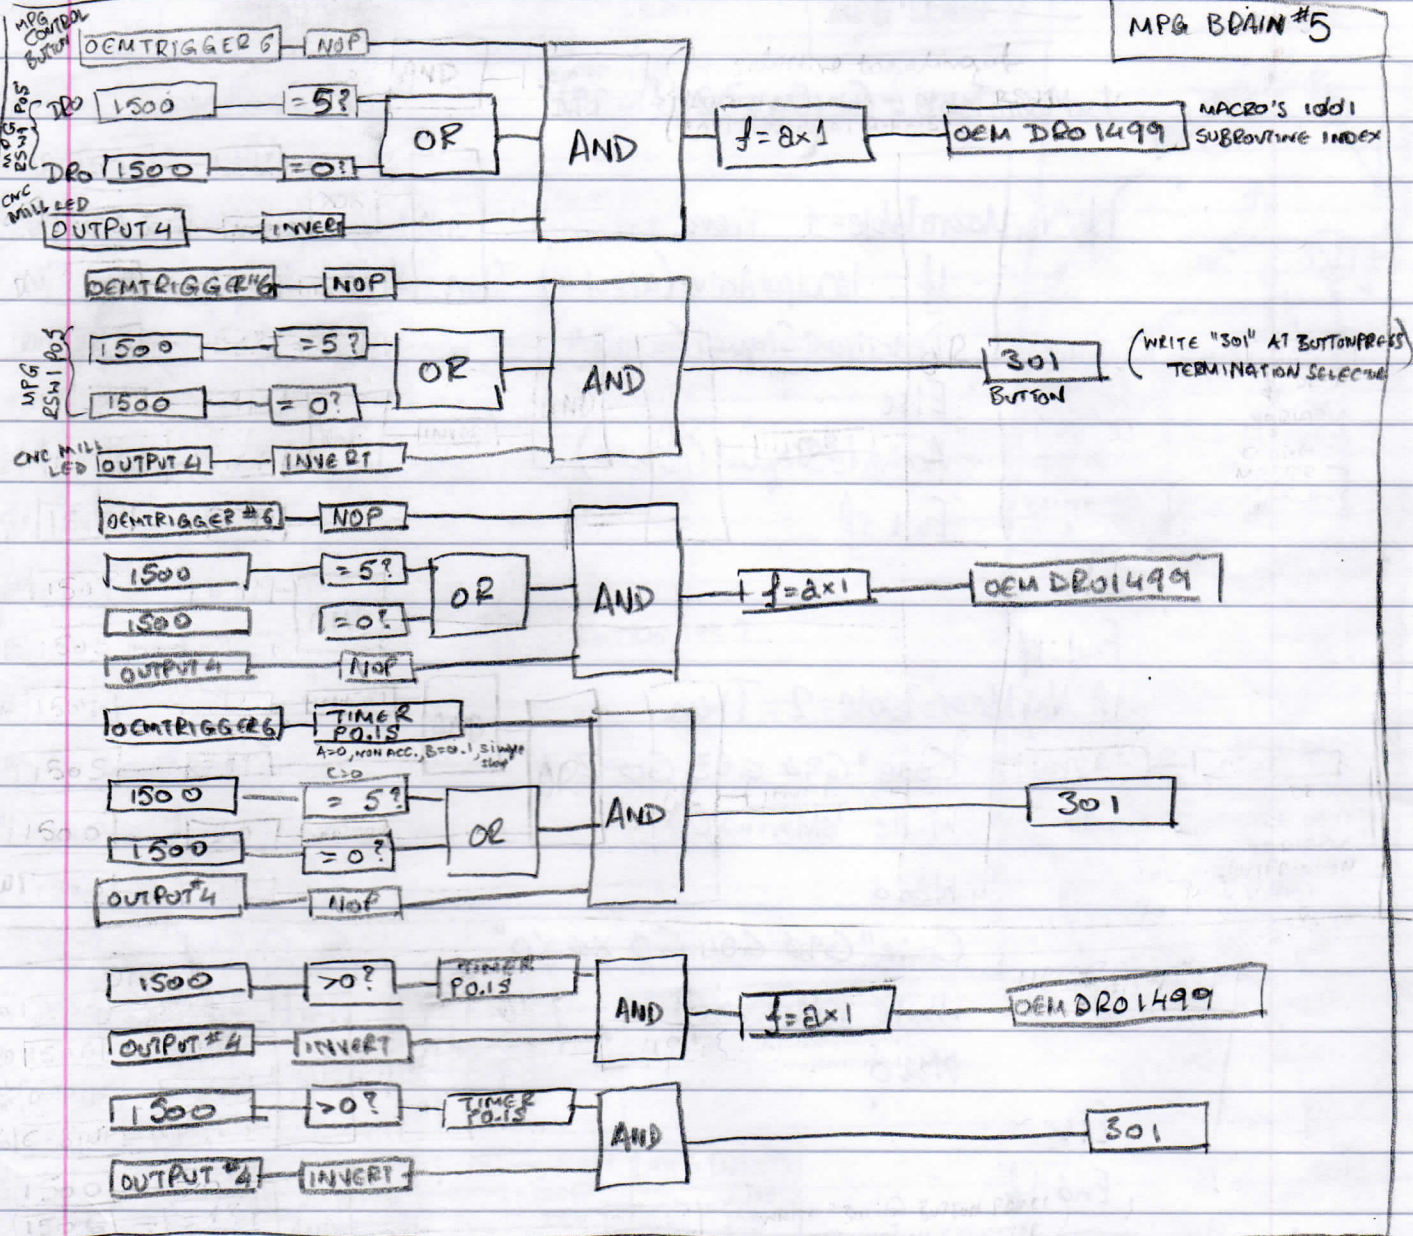 MPG BRAIN #5
MPG CONTROL BUTTON
OEMTRIGGER 6 NOP
MPG RSW1 POS
DRO 1500 =5?
OR
AND
f=2x1
OEM DRO 1499
MACRO'S 1001
SUBROUTINE INDEX
DRO 1500 =0?
CNC MILL LED
OUTPUT 4 INVERT
OEMTRIGGER #6 NOP
MPG RSW1 POS
1500 =5?
OR
AND
301
BUTTON
(WRITE "301" AT BUTTONPRESS)
TERMINATION SELECTOR
1500 =0?
CNC MILL LED
OUTPUT 4 INVERT
OEMTRIGGER #6 NOP
1500 =5?
OR
AND
f=2x1
OEM DRO1499
1500 =0?
OUTPUT 4 NOP
OEMTRIGGER6 TIMER
P0.1S
A=0, NON ACC., B=0.1, single
C=0
1500 =5?
OR
AND
301
1500 =0?
OUTPUT #4 NOP
1500 >0? TIMER
P0.1S
AND
f=2x1
OEM DRO1499
OUTPUT #4 INVERT
1500 >0? TIMER
P0.1S
AND
301
OUTPUT #4 INVERT